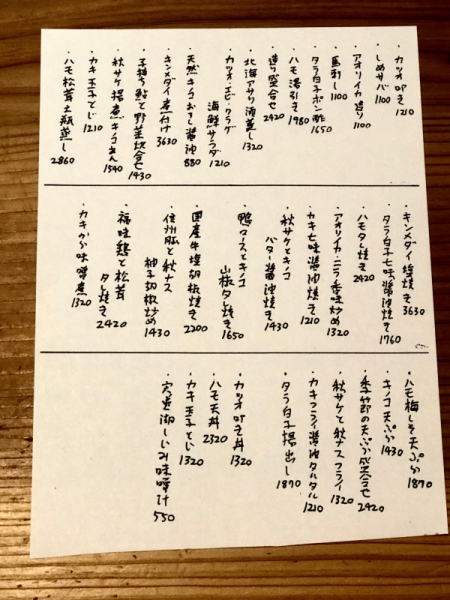 ・カツオ叩き 1210
・しめサバ 1100
・アオリイカ造り 1100
・馬刺し 1100
・タラ白子ポン酢 1650
・ハモ湯引き 1980
・造り盛合せ 2420
・北海アサリ酒蒸し 1320
・カツオ・エビ・クラゲ
海鮮サラダ 1210
・天然キノコおろし醤油 880
・キンメダイ煮付け 3630
・子持ち鮎と野菜炊合せ 1430
・秋サケ揚煮キノコあん 1540
・カキ玉子とじ 1210
・ハモ松茸土瓶蒸し 2860
・キンメダイ塩焼き 3630
・タラ白子七味醤油焼き 1760
・ハモタレ焼き 2420
・アオリイカ・ニラ香味炒め 1320
・カキ七味醤油焼き 1210
・秋サケとキノコ
バター醤油焼き 1430
・鴨ロースとキノコ
山椒タレ焼き 1650
・国産牛塩胡椒焼き 2200
・信州豚と秋ナス
柚子胡椒炒め 1430
・福味鶏と松茸
タレ焼き 2420
・カキから味噌煮 1320
・ハモ梅しそ天ぷら 1870
・キノコ天ぷら 1430
・季節の天ぷら盛合せ 2420
・秋サケと秋ナスフライ 1320
・カキフライ醤油タルタル 1210
・タラ白子揚出し 1870
・カツオ叩き丼 1320
・ハモ天丼 2320
・カキ玉子とじ 1320
・宍道湖しじみ味噌汁 550